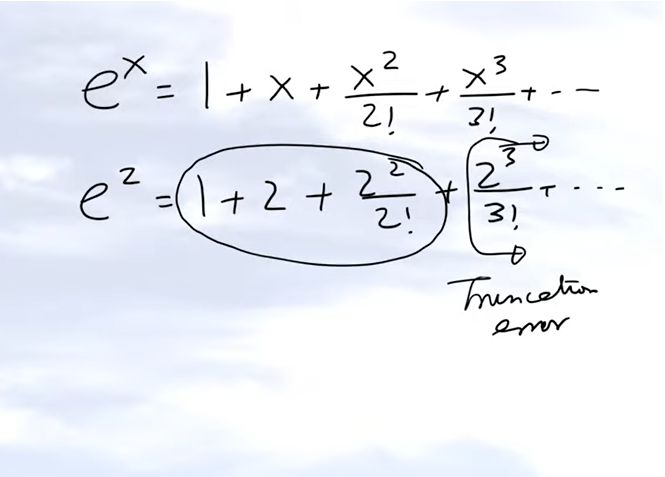 e^x = 1 + x + x^2/2! + x^3/3! + - - -
e^2 = 1 + 2 + 2^2/2! + 2^3/3! + - - -
Truncation
error